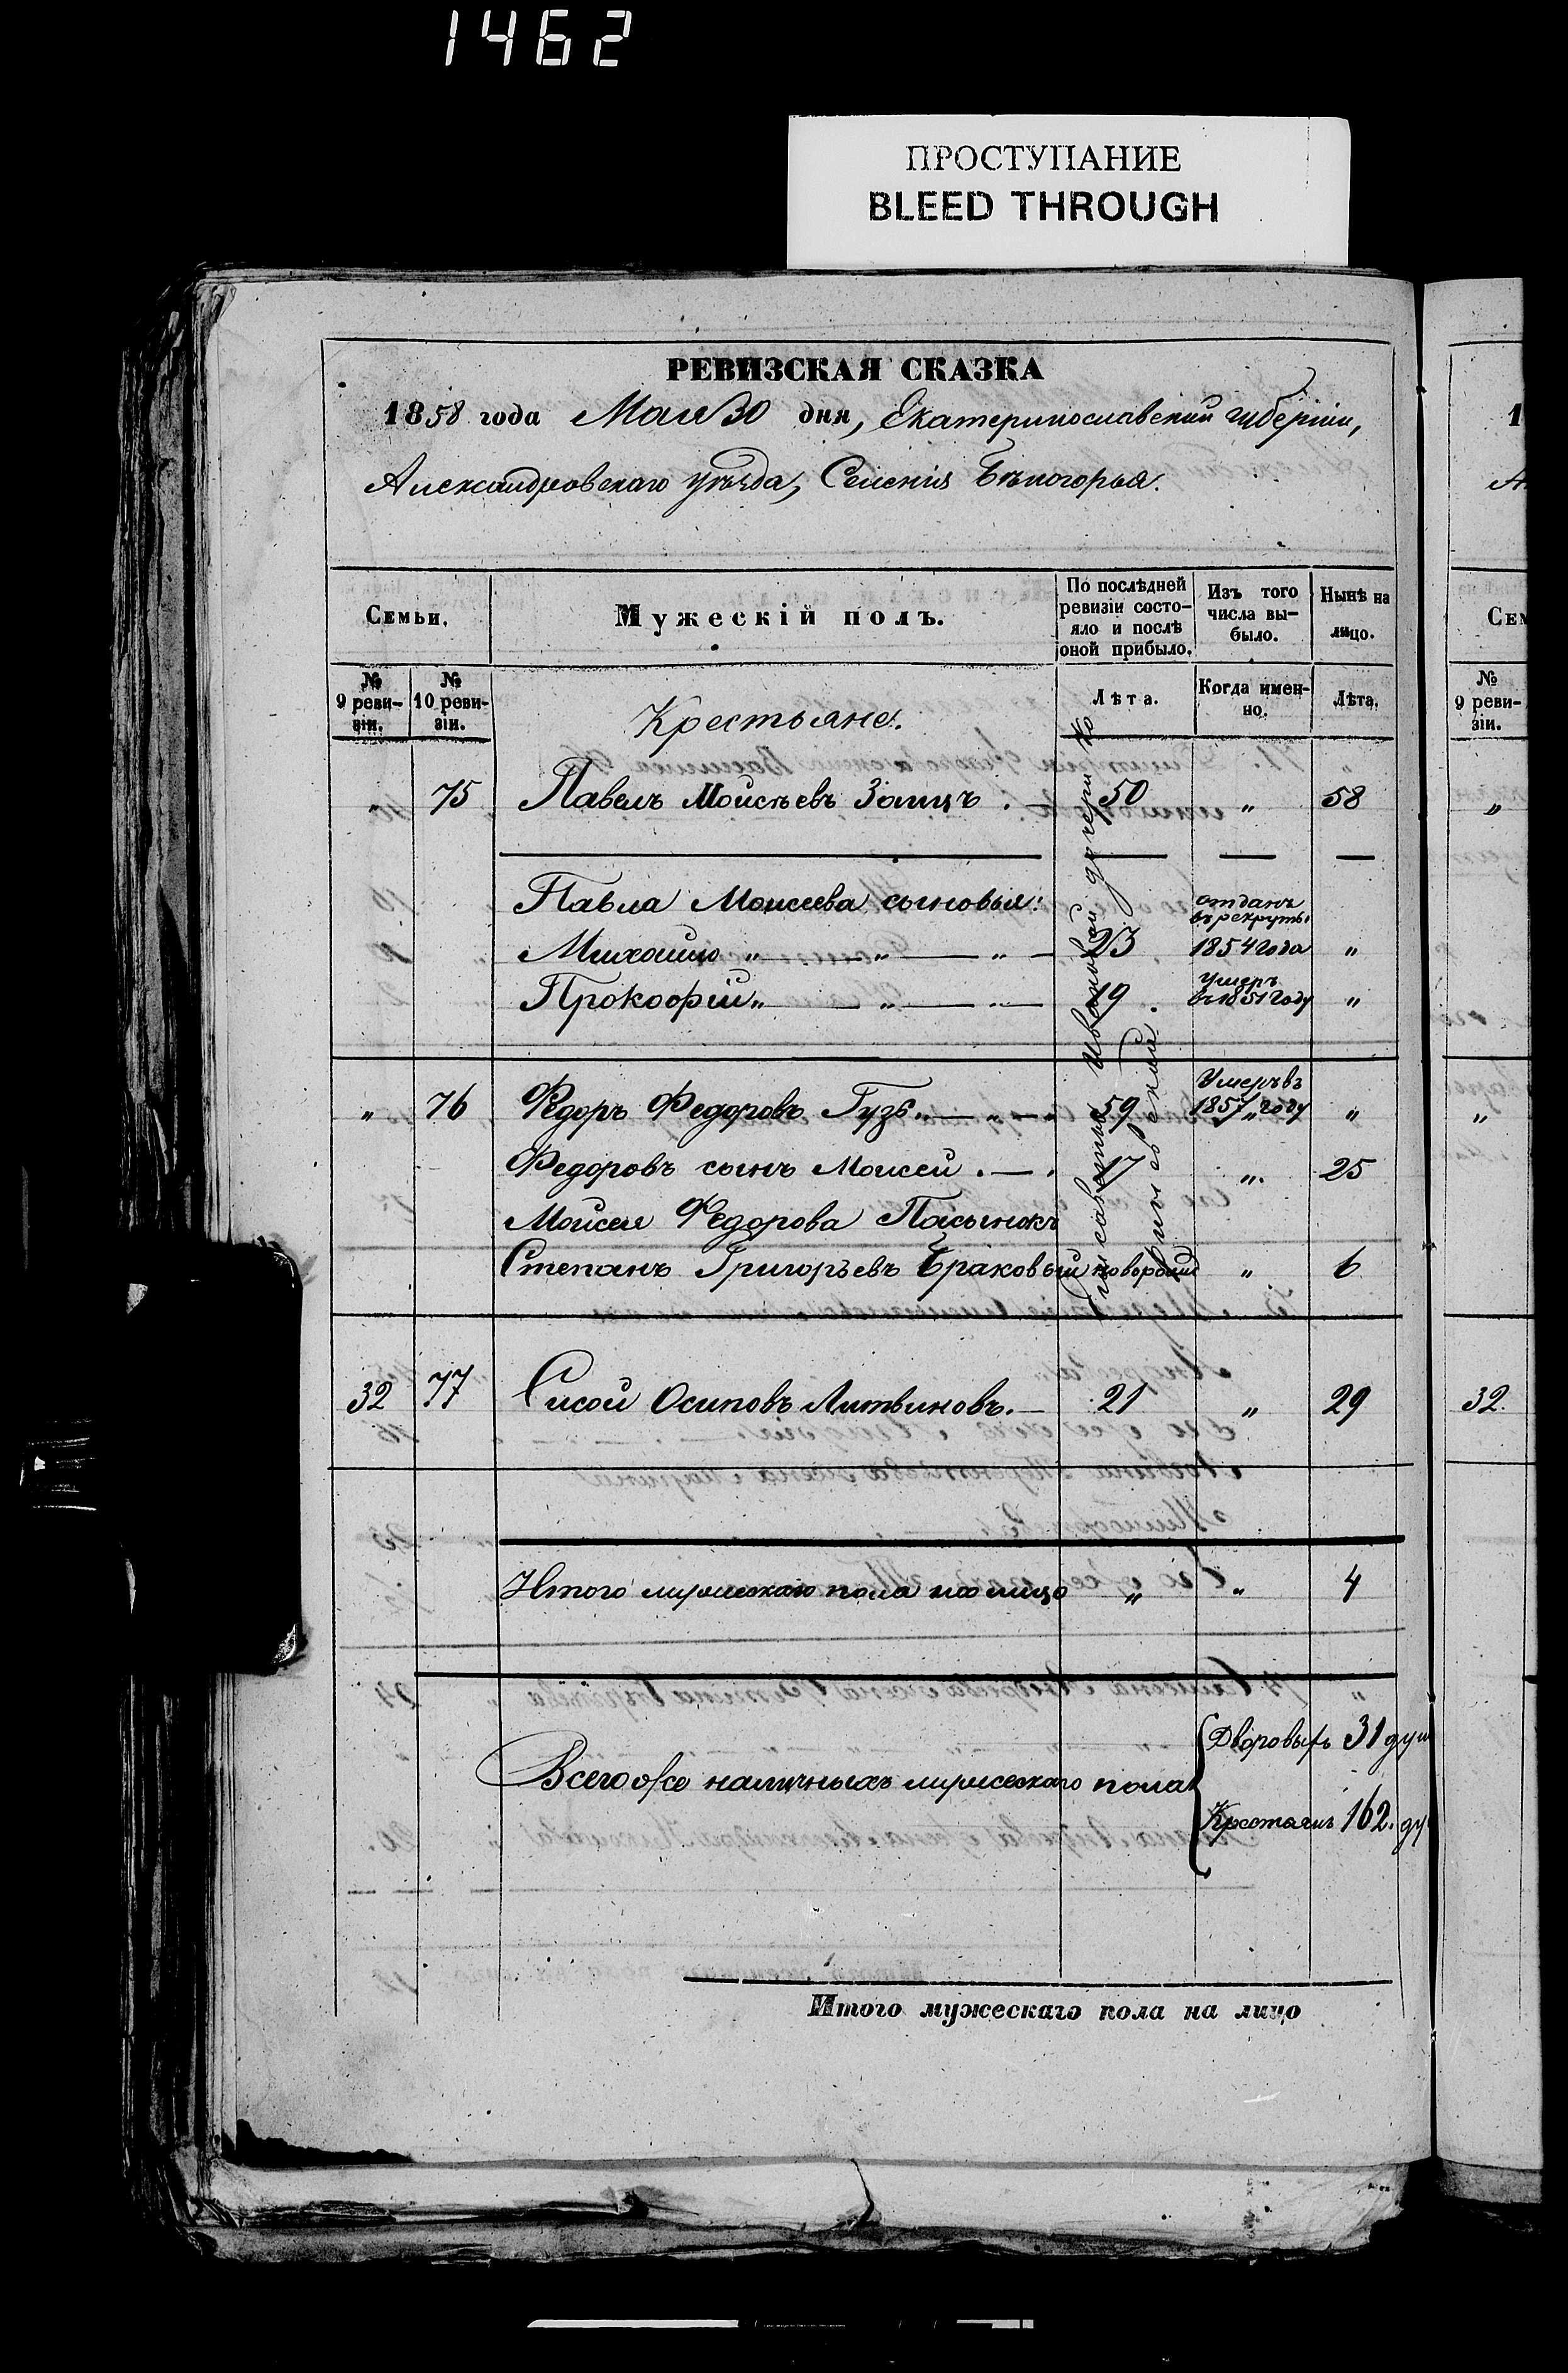 1462
ПРОСТУПАНИЕ
BLEED THROUGH
РЕВИЗСКАЯ СКАЗКА
1858 года Мая 30 дня, Екатеринославской губерніи,
Александровскаго уѣзда, Селенія Бѣлогорья.
Семьи. Мужескій полъ. По послѣдней ревизіи состояло и послѣ оной прибыло. Изъ того числа выбыло. Нынѣ на лицо.
№ 9 ревизіи. № 10 ревизіи. Лѣта. Когда именно. Лѣта.
Крестьяне.
75 Павелъ Моисѣевъ Заицъ . — 50 „ 58
Павла Моисеева сыновья:
Михайло „ — „ — „ — 23 отданъ въ рекруты 1854 года „
Прокофій „ — „ — „ — 19 Умеръ въ 1851 году „
„ 76 Федоръ Федоровъ Гузь „ — „ — 59 Умеръ въ 1857 году „
Федоровъ сынъ Моисей . — . 17 „ 25
Моисея Федорова Пасынокъ
Степанъ Григорьевъ Браковый новорожд „ 6
32 77 Сисой Осиповъ Литвиновъ. — 21 „ 29
Итого мужескаго пола на лицо „ „ 4
Всего же наличныхъ мужескаго пола
Дворовыхъ 31 душ
Крестьянъ 162. ду
Итого мужескаго пола на лицо
Ивановой дочери
1
А
Сем
№ 9 ревизіи.
„
„
32.